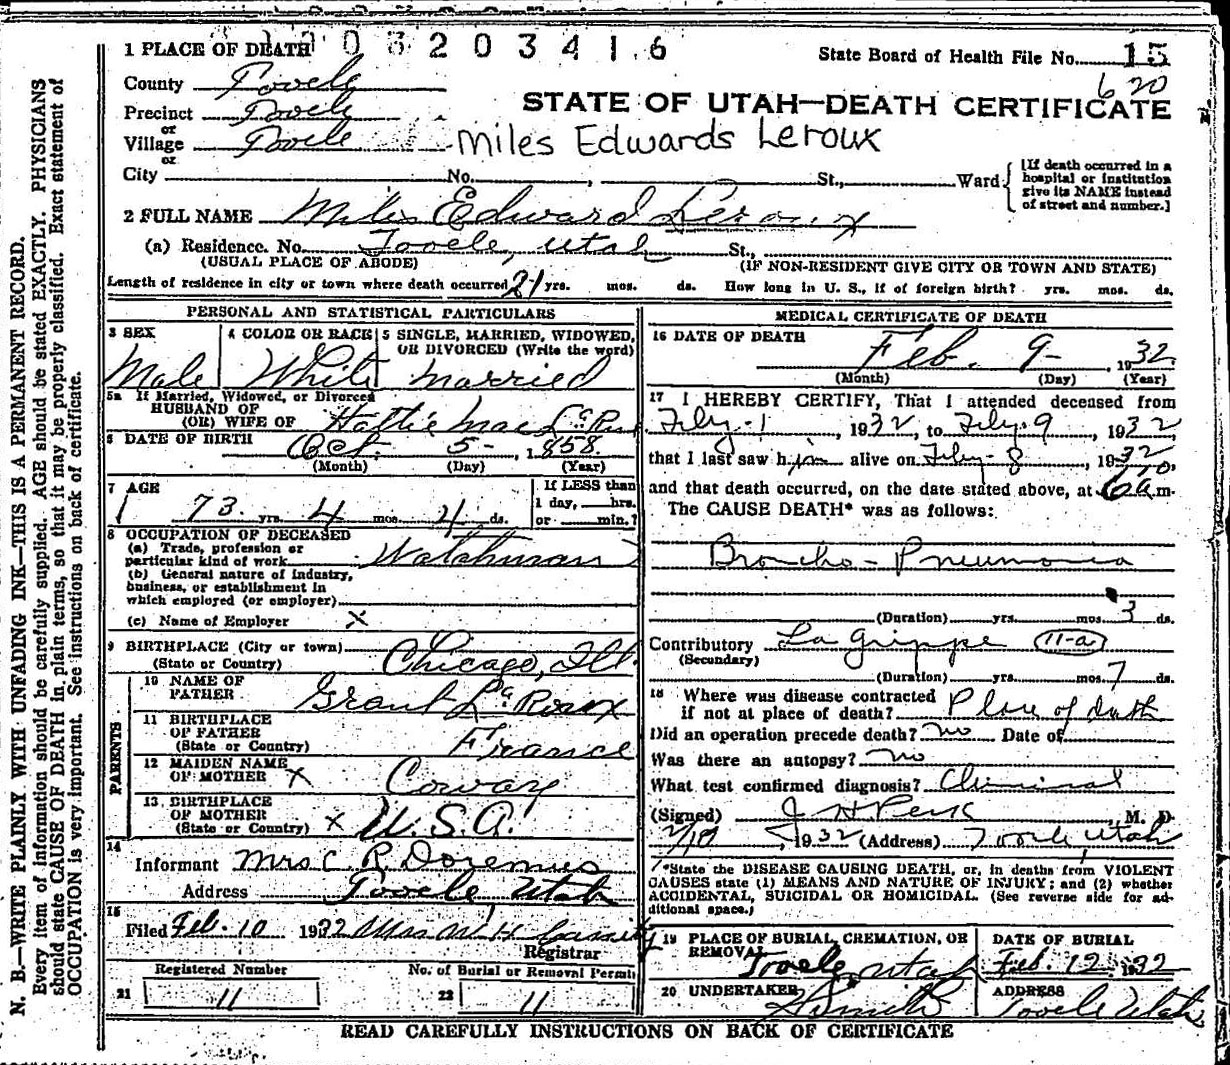 1 PLACE OF DEATH
0 3 2 0 3 4 1 6
State Board of Health File No. 15
620
County Tooele
STATE OF UTAH—DEATH CERTIFICATE
Precinct Tooele
or
Village Tooele
Miles Edwards Leroux
or
City No. , St., Ward
[If death occurred in a hospital or institution give its NAME instead of street and number.]
2 FULL NAME Miles Edward Leroux
(a) Residence. No. Tooele, Utah St.,
(USUAL PLACE OF ABODE) (IF NON-RESIDENT GIVE CITY OR TOWN AND STATE)
Length of residence in city or town where death occurred 21 yrs. mos. ds. How long in U. S., if of foreign birth? yrs. mos. ds.
PERSONAL AND STATISTICAL PARTICULARS
3 SEX 4 COLOR OR RACE 5 SINGLE, MARRIED, WIDOWED,
OR DIVORCED (Write the word)
Male White Married
5a If Married, Widowed, or Divorced
HUSBAND OF
(OR) WIFE OF Hattie Mae
6 DATE OF BIRTH Oct. 5- , 1858.
(Month) (Day) (Year)
7 AGE If LESS than
1 day, hrs.
73. yrs. 4 mos. 4 ds. or min.?
8 OCCUPATION OF DECEASED
(a) Trade, profession or
particular kind of work Watchman
(b) General nature of industry,
business, or establishment in
which employed (or employer)
(c) Name of Employer x
9 BIRTHPLACE (City or town)
(State or Country) Chicago, Ill.
PARENTS
10 NAME OF
FATHER Grant La Roux
11 BIRTHPLACE
OF FATHER
(State or Country) France
12 MAIDEN NAME
OF MOTHER x
13 BIRTHPLACE
OF MOTHER
(State or Country) x U. S. A.
14
Informant Mrs C. R. Doremus
Address Tooele, Utah
15
Filed Feb. 10 1932 Mrs
Registrar
Registered Number No. of Burial or Removal Permit
21 11 22 11
MEDICAL CERTIFICATE OF DEATH
16 DATE OF DEATH
Feb. 9- , 1932.
(Month) (Day) (Year)
17 I HEREBY CERTIFY, That I attended deceased from
Feby-1 , 1932, to Feby-9 , 1932,
that I last saw him alive on Feby-8 , 1932,
and that death occurred, on the date stated above, at 6 a m.
The CAUSE DEATH* was as follows:
Broncho-Pneumonia
(Duration) yrs. mos. 3 ds.
Contributory La Grippe 11-a
(Secondary)
(Duration) yrs. mos. 7 ds.
18 Where was disease contracted
if not at place of death? Place of death
Did an operation precede death? no Date of
Was there an autopsy? no
What test confirmed diagnosis?
(Signed) J H Peck , M. D.
2/10 , 1932 (Address) Tooele, Utah
*State the DISEASE CAUSING DEATH, or, in deaths from VIOLENT
CAUSES state (1) MEANS AND NATURE OF INJURY; and (2) whether
ACCIDENTAL, SUICIDAL OR HOMICIDAL. (See reverse side for ad-
ditional space.)
19 PLACE OF BURIAL, CREMATION, OR
REMOVAL Tooele, Utah
DATE OF BURIAL
Feb. 12, 1932
20 UNDERTAKER
ADDRESS
Tooele Utah
READ CAREFULLY INSTRUCTIONS ON BACK OF CERTIFICATE
N. B.—WRITE PLAINLY WITH UNFADING INK—THIS IS A PERMANENT RECORD.
Every item of information should be carefully supplied. AGE should be stated EXACTLY. PHYSICIANS
should state CAUSE OF DEATH in plain terms, so that it may be properly classified. Exact statement of
OCCUPATION is very important. See instructions on back of certificate.